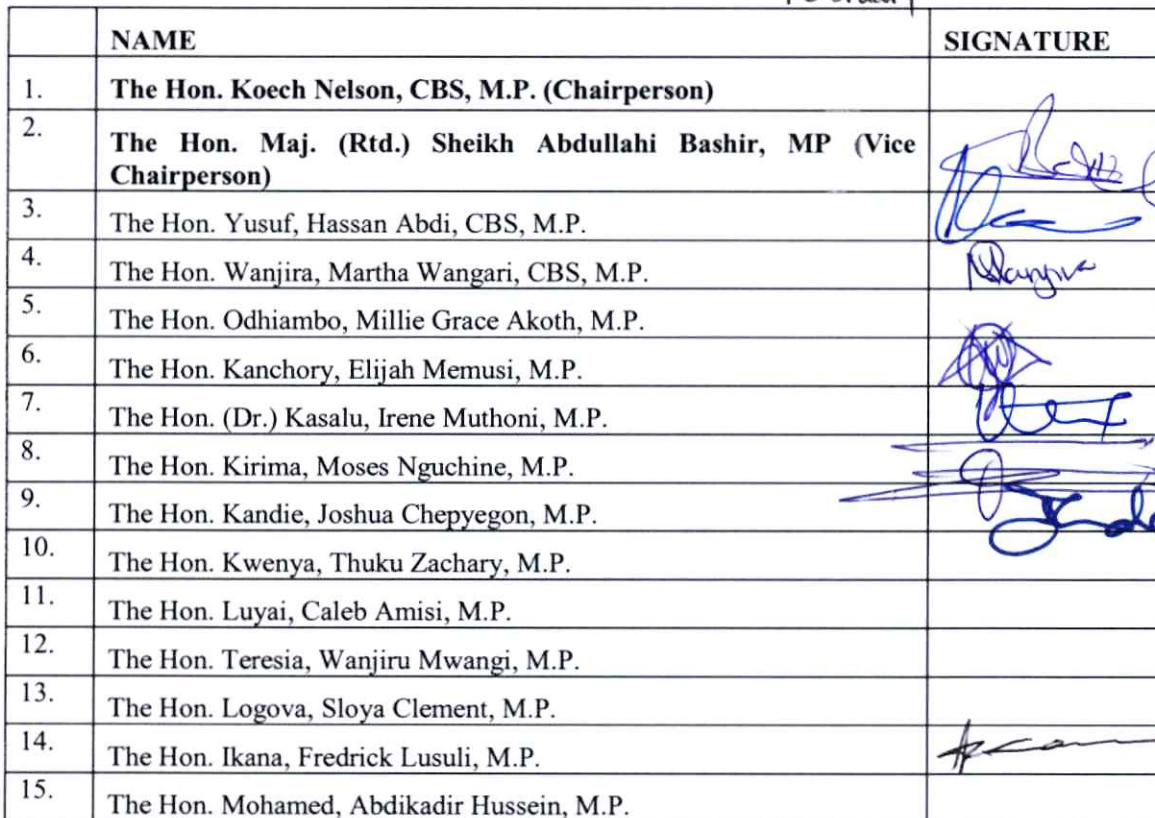 NAME SIGNATURE
1. The Hon. Koech Nelson, CBS, M.P. (Chairperson)
2. The Hon. Maj. (Rtd.) Sheikh Abdullahi Bashir, MP (Vice
Chairperson)
3. The Hon. Yusuf, Hassan Abdi, CBS, M.P.
4. The Hon. Wanjira, Martha Wangari, CBS, M.P.
5. The Hon. Odhiambo, Millie Grace Akoth, M.P.
6. The Hon. Kanchory, Elijah Memusi, M.P.
7. The Hon. (Dr.) Kasalu, Irene Muthoni, M.P.
8. The Hon. Kirima, Moses Nguchine, M.P.
9. The Hon. Kandie, Joshua Chepyegon, M.P.
10. The Hon. Kwenya, Thuku Zachary, M.P.
11. The Hon. Luyai, Caleb Amisi, M.P.
12. The Hon. Teresia, Wanjiru Mwangi, M.P.
13. The Hon. Logova, Sloya Clement, M.P.
14. The Hon. Ikana, Fredrick Lusuli, M.P.
15. The Hon. Mohamed, Abdikadir Hussein, M.P.